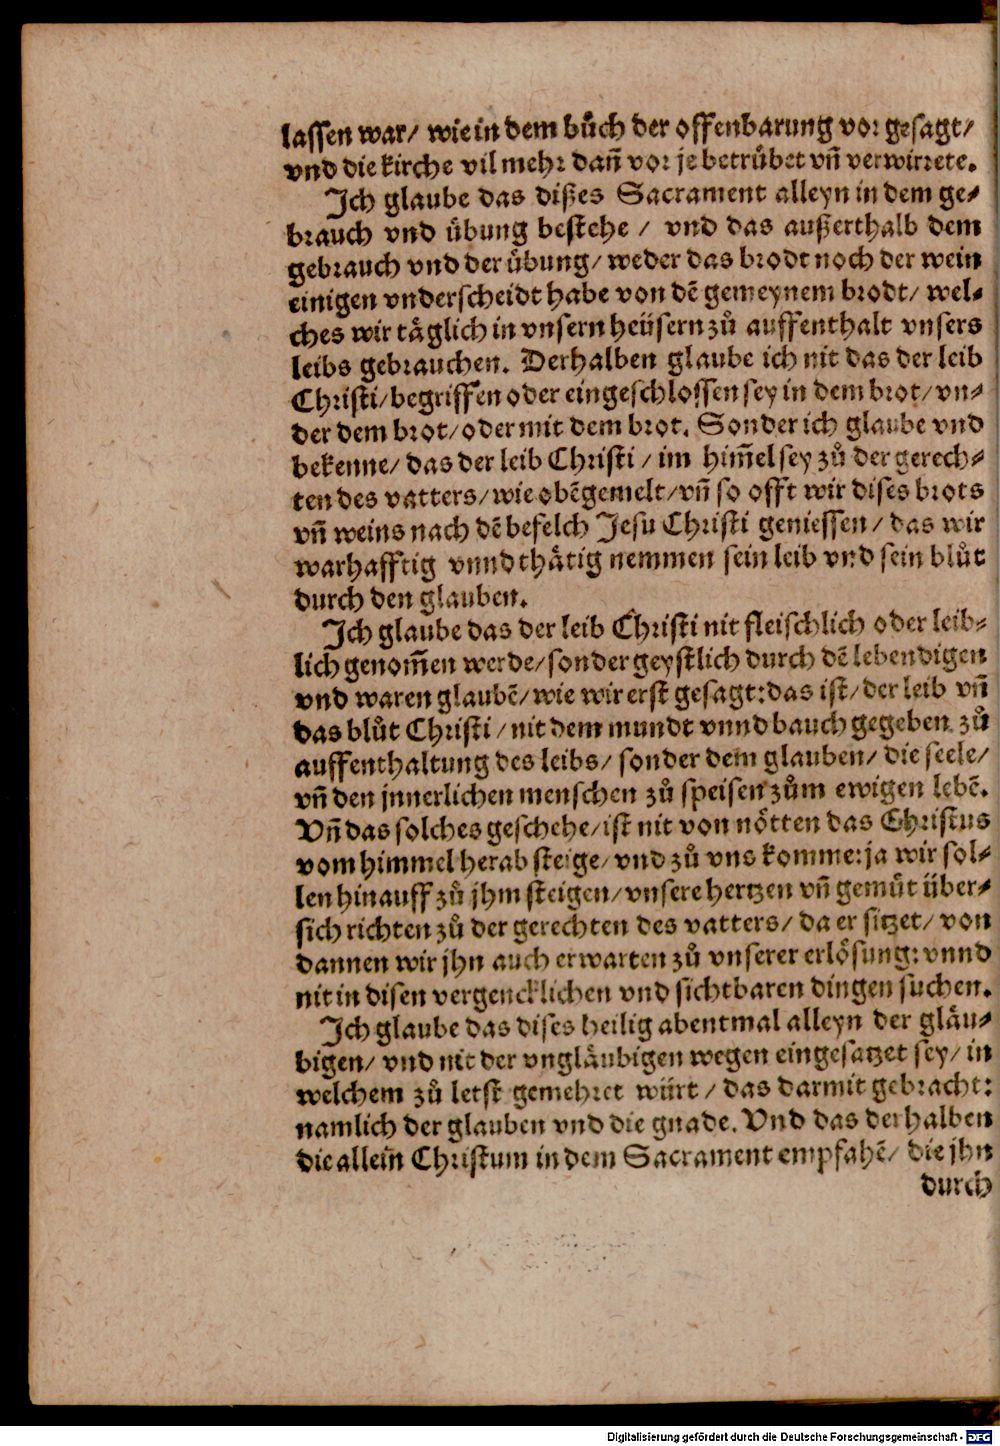 lassen war/ wie in dem bůch der offenbarung vor gesagt/
vnd die kirche vil mehr dañ vor je betrůbet vñ verwirrete.
Ich glaube das dißes Sacrament alleyn in dem ge⸗
brauch vnd übung bestehe / vnd das außerthalb dem
gebrauch vnd der übung/ weder das brodt noch der wein
einigen vnderscheidt habe von dẽ gemeynem brodt/ wel⸗
ches wir täglich in vnsern heüsern zů auffenthalt vnsers
leibs gebrauchen. Derhalben glaube ich nit das der leib
Christi/ begriffen oder eingeschlossen sey in dem brot/ vn⸗
der dem brot/ oder mit dem brot. Sonder ich glaube vnd
bekenne/ das der leib Christi / im him̃el sey zů der gerech⸗
ten des vatters/ wie obẽgemelt/ vñ so offt wir dises brots
vñ weins nach dẽ befelch Jesu Christi geniessen/ das wir
warhafftig vnnd thätig nemmen sein leib vnd sein blůt
durch den glauben.
Ich glaube das der leib Christi nit fleischlich oder leib⸗
lich genom̃en werde/ sonder geystlich durch dẽ lebendigen
vnd waren glaubẽ/ wie wir erst gesagt: das ist/ der leib vñ
das blůt Christi / nit dem mundt vnnd bauch gegeben zů
auffenthaltung des leibs/ sonder dem glauben/ die seele/
vñ den jnnerlichen menschen zů speisen zům ewigen lebẽ.
Vñ das solches geschehe/ ist nit von nötten das Christus
vom himmel herab steige/ vnd zů vns komme: ja wir sol⸗
len hinauff zů jhm steigen/ vnsere hertzen vñ gemůt über⸗
sich richten zů der gerechten des vatters/ da er sitzet/ von
dannen wir jhn auch erwarten zů vnserer erlösung: vnnd
nit in disen vergencklichen vnd sichtbaren dingen suchen.
Ich glaube das dises heilig abentmal alleyn der gläu⸗
bigen/ vnd nit der vngläubigen wegen eingesatzet sey/ in
welchem zů letst gemehret würt / das darmit gebracht:
namlich der glauben vnd die gnade. Vnd das derhalben
die allein Christum in dem Sacrament empfahẽ/ die jhn
durch
Digitalisierung gefördert durch die Deutsche Forschungsgemeinschaft - DFG